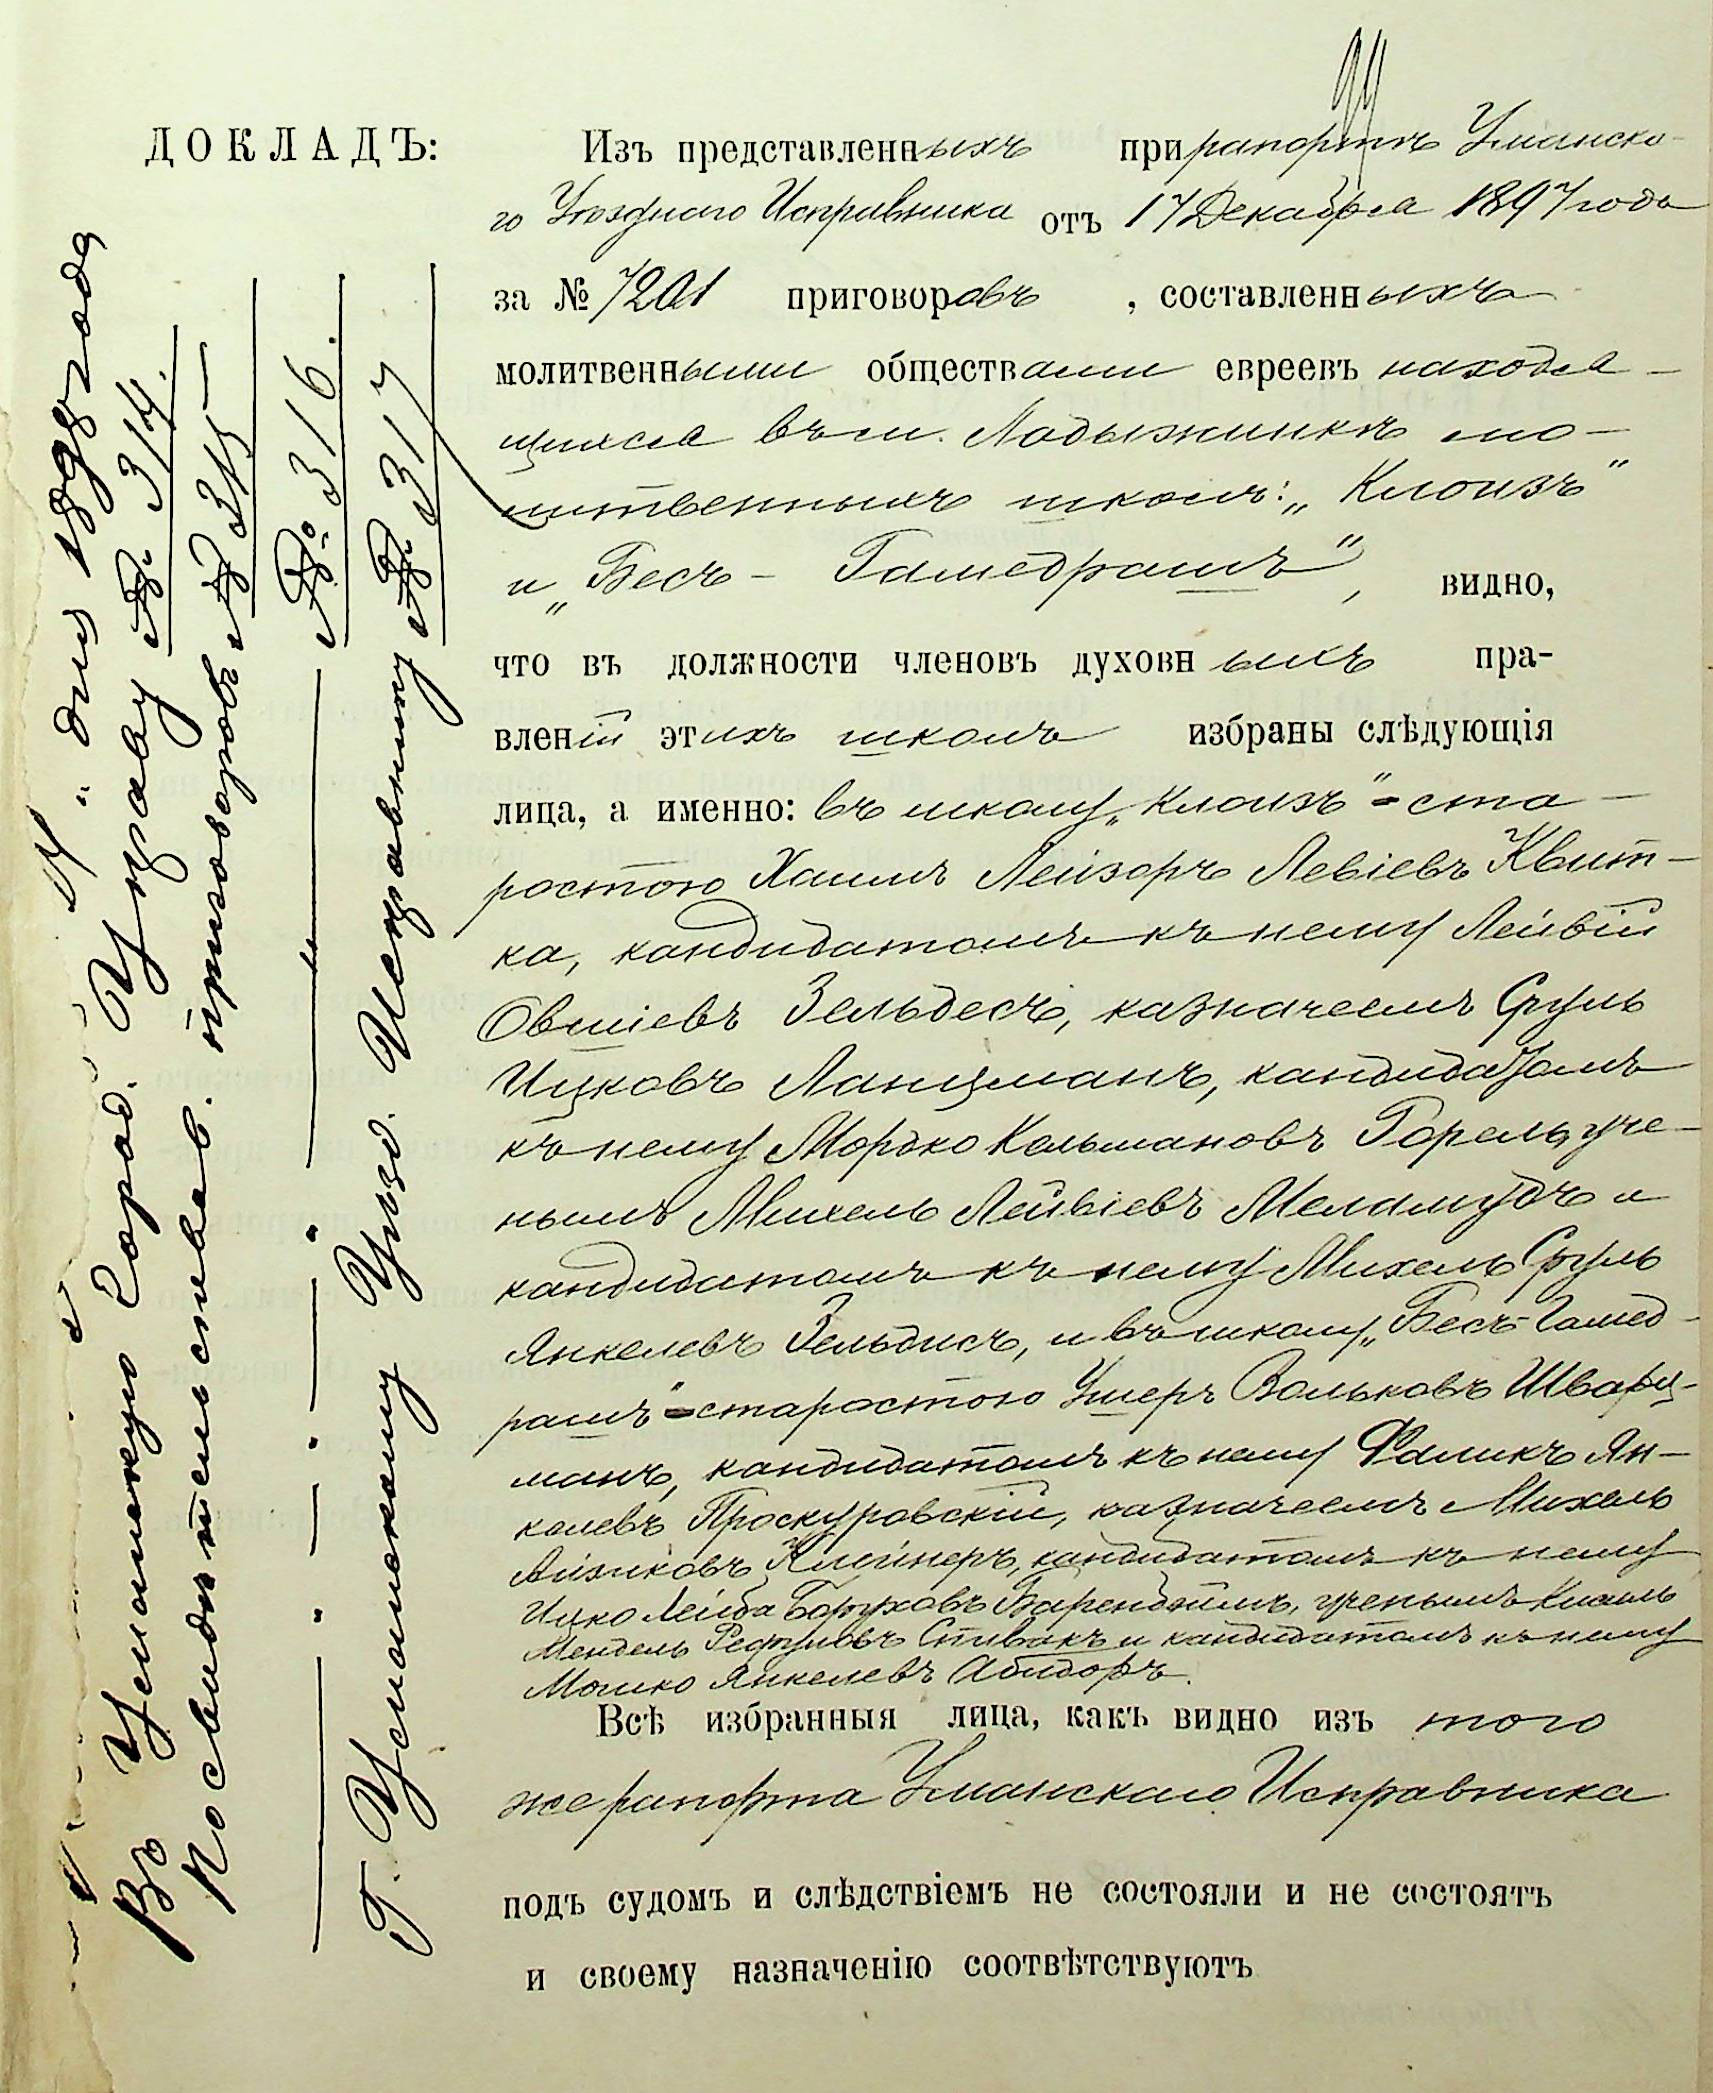 99
ДОКЛАДЪ:
Изъ представленныхъ при рапортѣ Уманска-
го Уѣзднаго Исправника отъ 17 Декабря 1897 года
за № 7201 приговоровъ, составленныхъ
молитвенными обществами евреевъ находя-
щихся въ м. Ладыжинкѣ мо-
литвенныхъ школъ: „Клоизъ"
и „Бесъ-Гамедрашъ", видно,
что въ должности членовъ духовныхъ пра-
вленій этихъ школъ избраны слѣдующія
лица, а именно: въ школу „Клоизъ" - ста-
ростою Хаимъ Лейзоръ Левіевъ Квит-
ка, кандидатомъ къ нему Лейвій
Овшіевъ Зельдесъ, казначеемъ Сруль
Ицковъ Ланцманъ, кандидатомъ
къ нему Мордко Кельмановъ Горель, уче-
нымъ Михель Лейвіевъ Меламудъ и
кандидатомъ къ нему Михель Сруль
Янкелевъ Зельдисъ, и въ школу „Бесъ-Гамед-
рашъ" - старостою Ушеръ Вольковъ Шварц-
манъ, кандидатомъ къ нему Фаликъ Ян-
келевъ Проскуровскій, казначеемъ Михель
Айзиковъ Клейнеръ, кандидатомъ къ нему
Ицко Лейба Боруховъ Баренбоймъ, ученымъ Кисиль
Мендель Рефуловъ Спивакъ и кандидатомъ къ нему
Мошко Янкелевъ Абидоръ.
Всѣ избранныя лица, какъ видно изъ того
же рапорта Уманскаго Исправника
подъ судомъ и слѣдствіемъ не состояли и не состоятъ
и своему назначенію соотвѣтствуютъ
" дня 1898 года
Въ Уманскую Город. Управу № 314.
Посвидѣтельствов. приговоровъ № 315
№ 316.
Г. Уманскому Уѣзд. Исправнику № 317